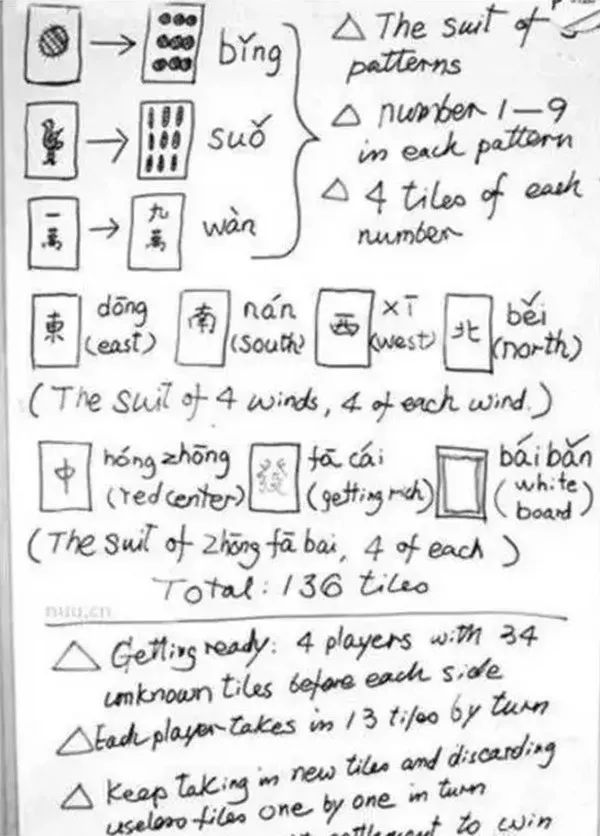 bǐng
suǒ
一萬
九萬
wàn
△ The suit of
patterns
△ number 1—9
in each pattern
△ 4 tiles of each
number
東 dōng
(east)
南 nán
(south)
西 xī
(west)
北 běi
(north)
(The suit of 4 winds, 4 of each wind.)
中 hóng zhōng
(red center)
發 fā cái
(getting rich)
bái bǎn
(white
board)
(The suit of zhōng fā bai, 4 of each)
Total: 136 tiles
nuu.cn
△ Getting ready: 4 players with 34
unknown tiles before each side
△ Each player takes in 13 tiles by turn
△ Keep taking in new tiles and discarding
useless tiles one by one in turn
settlement to win